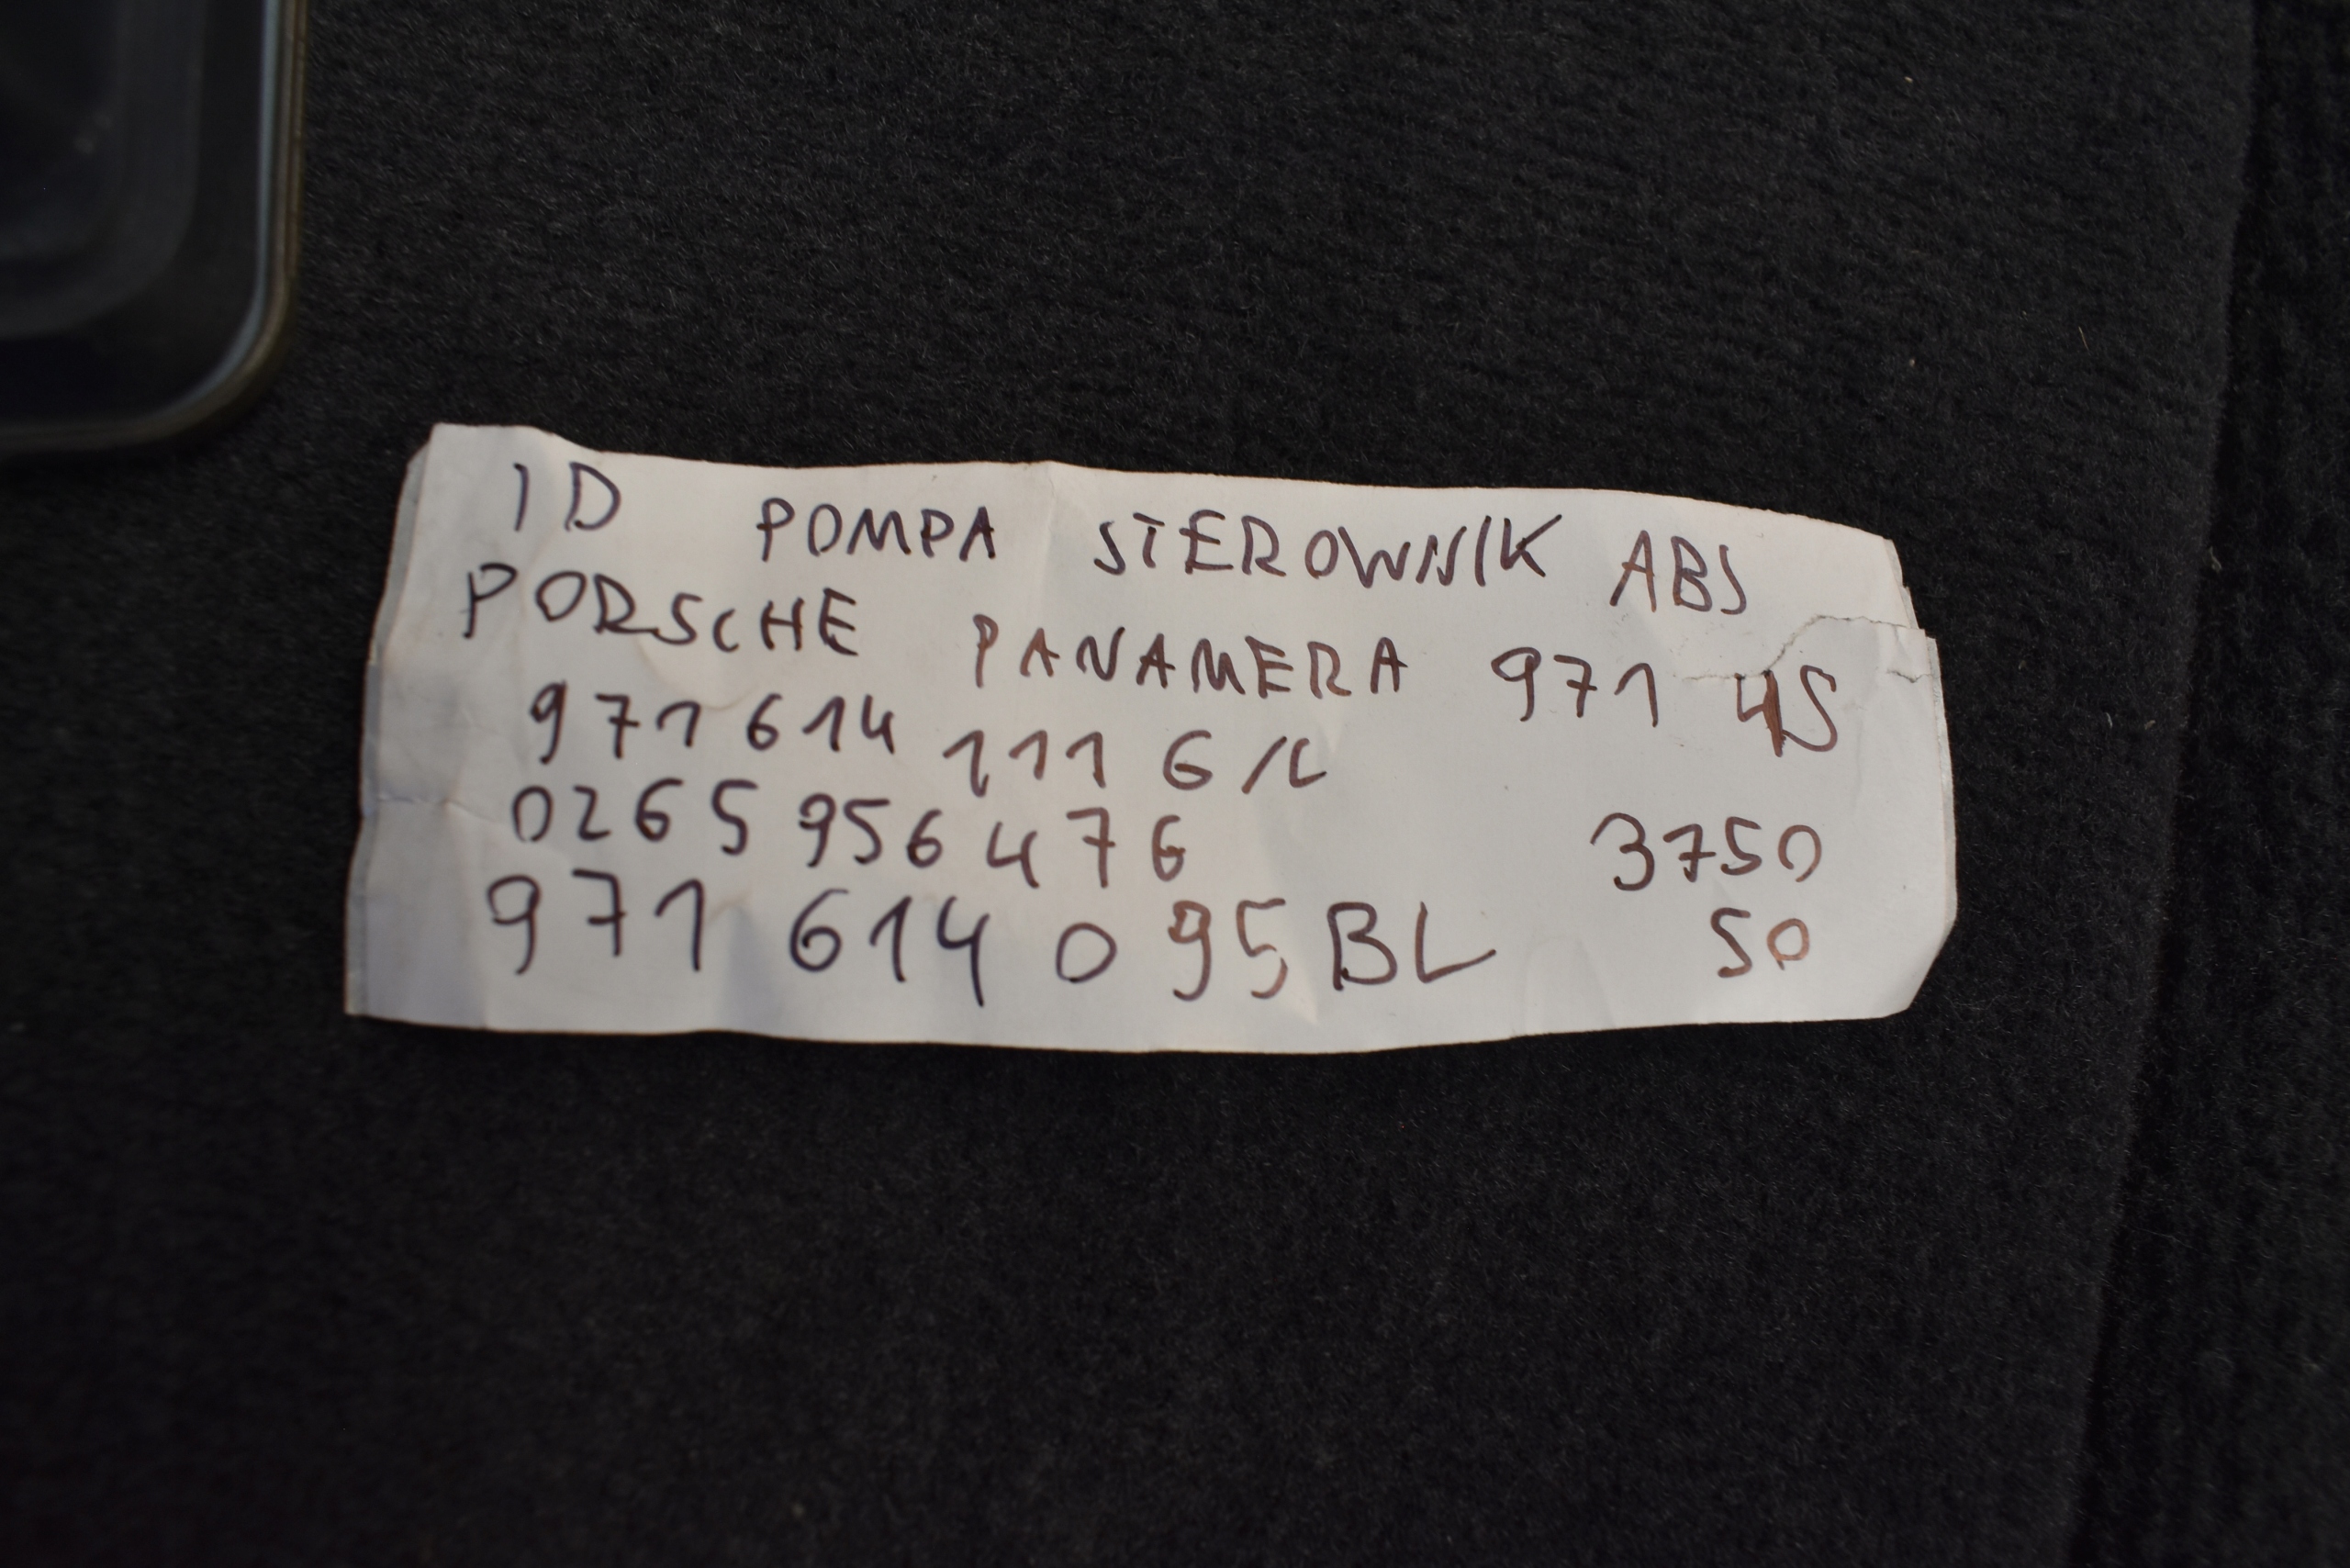 ID POMPA STEROWNIK ABS
PORSCHE PANAMERA 971 4S
971 614 111 G/L
0265 956 476 3750
971 614 095BL 50